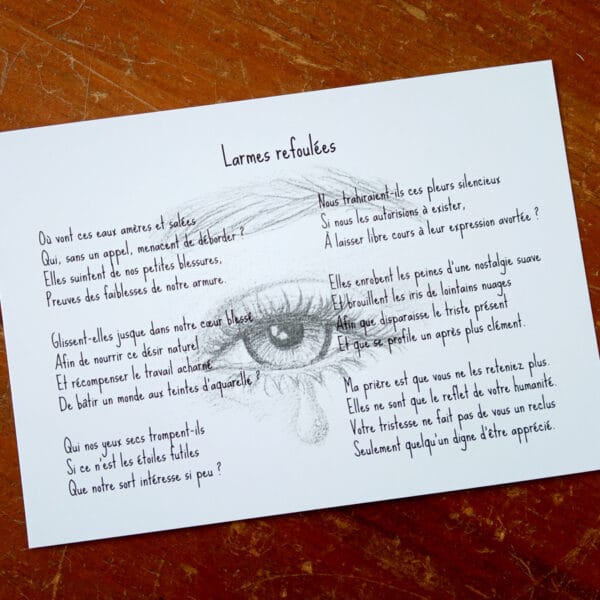 Larmes refoulées
Où vont ces eaux amères et salées
Qui, sans un appel, menacent de déborder ?
Elles suintent de nos petites blessures,
Preuves des faiblesses de notre armure.
Glissent-elles jusque dans notre cœur blessé
Afin de nourrir ce désir naturel
Et récompenser le travail acharné
De bâtir un monde aux teintes d'aquarelle ?
Qui nos yeux secs trompent-ils
Si ce n'est les étoiles futiles
Que notre sort intéresse si peu ?
Nous trahiraient-ils ces pleurs silencieux
Si nous les autorisions à exister,
À laisser libre cours à leur expression avortée ?
Elles enrobent les peines d'une nostalgie suave
Et brouillent les iris de lointains nuages
Afin que disparaisse le triste présent
Et que se profile un après plus clément.
Ma prière est que vous ne les reteniez plus.
Elles ne sont que le reflet de votre humanité.
Votre tristesse ne fait pas de vous un reclus
Seulement quelqu'un digne d'être apprécié.